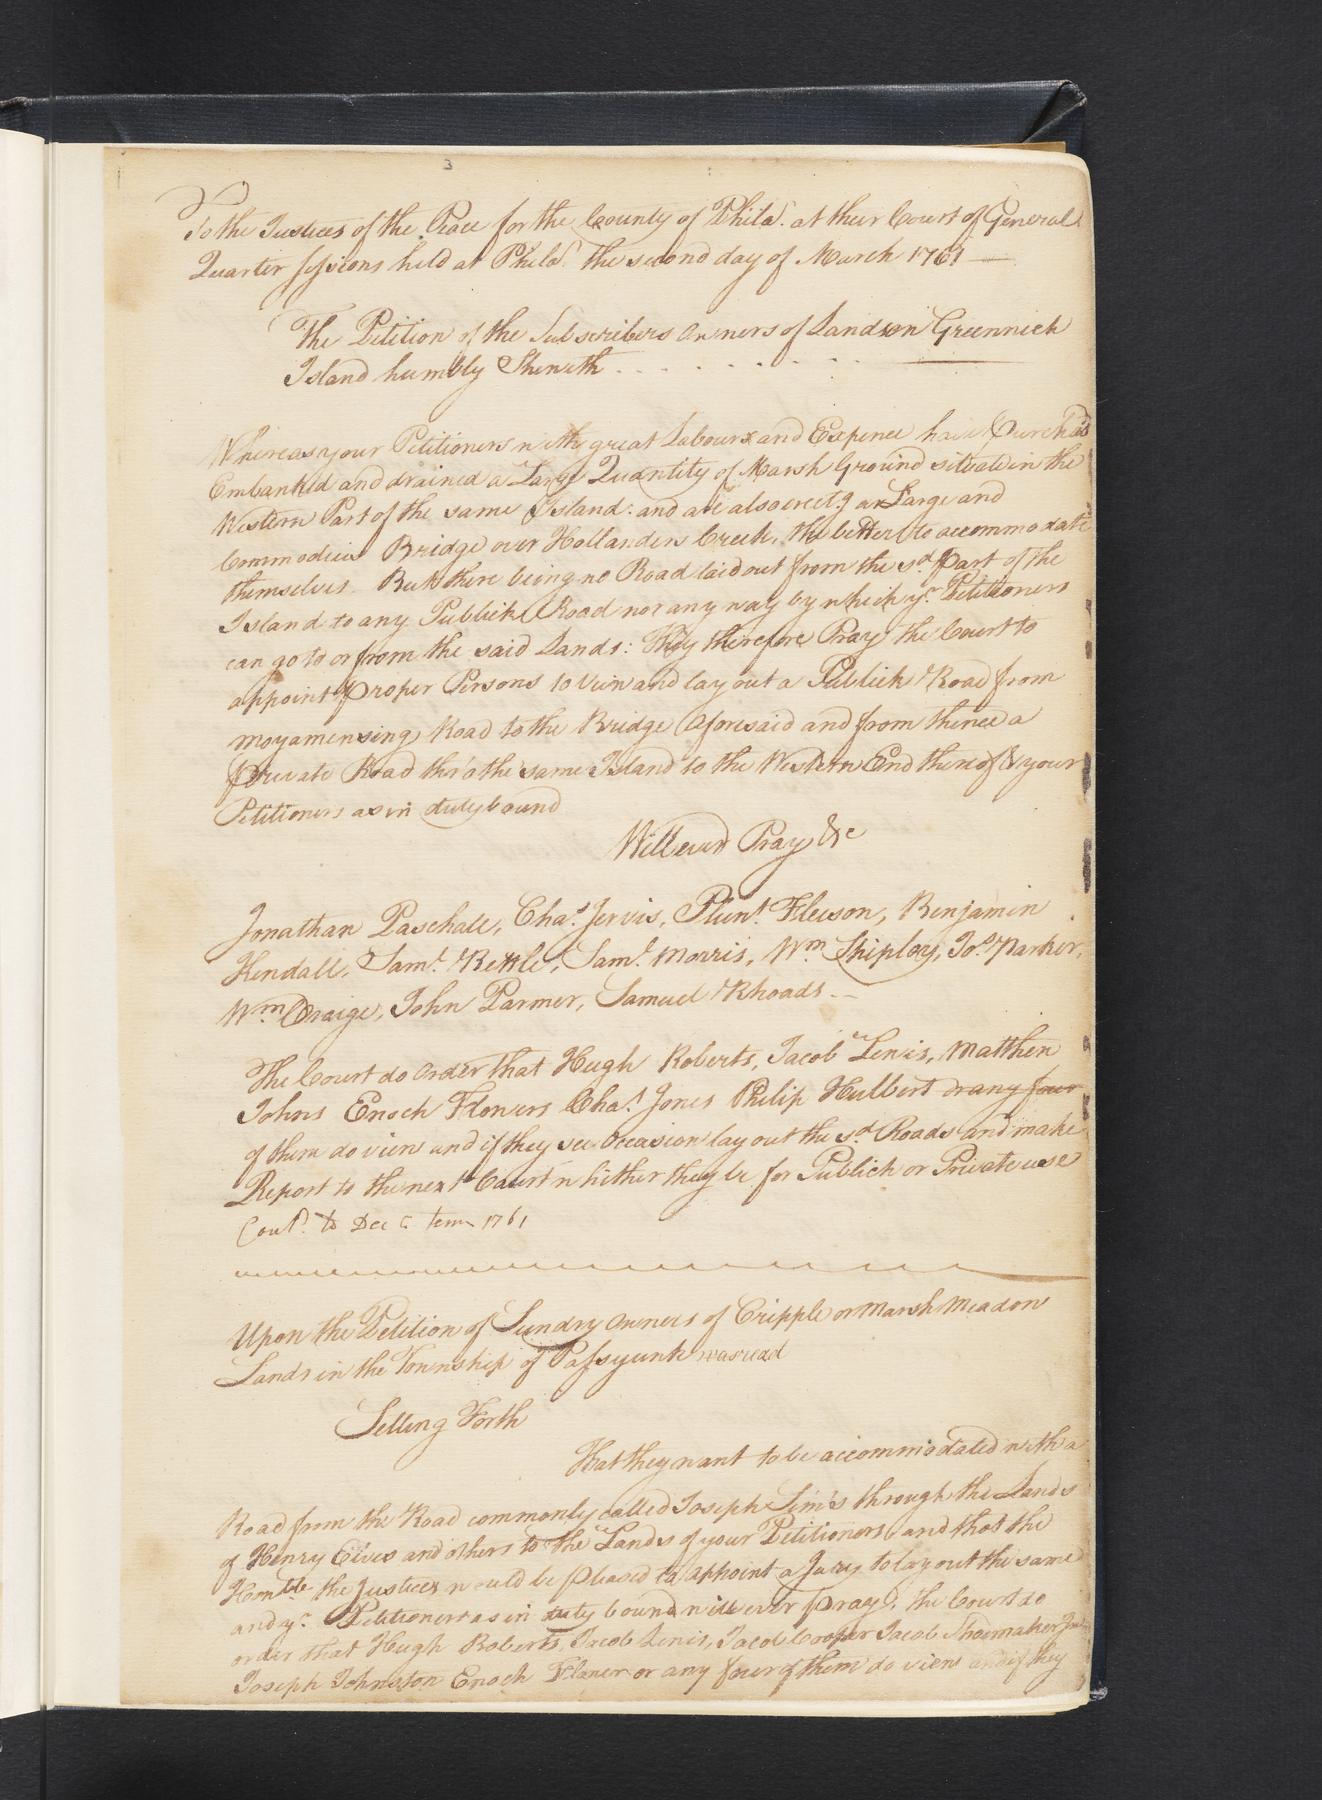 3
To the Justices of the Peace for the County of Philad.ª at their Court of General
Quarter Sessions held at Philad.ª the second day of March 1761 —
The Petition of the Subscribers Owners of Lands on Greenwich
Island humbly Sheweth . . . . . . .
Whereas your Petitioners with great Labour and Expence have Purchas'd
Embanked and drained a Large Quantity of Marsh Ground situate in the
Western Part of the same Island: and are also erect.g a Large and
Commodious Bridge over Hollanders Creek, the better to accommodate
themselves. But there being no Road laid out from the s.d Part of the
Island to any Publick Road nor any way by which y.r Petitioners
can go to or from the said Lands: They therefore Pray the Court to
appoint Proper Persons to view and lay out a Publick Road from
moyamensing Road to the Bridge Aforesaid and from thence a
Private Road thro the same Island to the Western End thereof & your
Petitioners as in duty bound
Will ever Pray &c
Jonathan Paschall, Cha.s Jervis, Plun.t Fleeson, Benjamin
Kendall, Sam.l Kettle, Sam.l Morris, W.m Shipley, Jo.s Warker,
W.m Craige, John Parmer, Samuel Rhoads —
The Court do Order that Hugh Roberts, Jacob Lewis, Matthew
Johns Enoch Flowers Cha.s Jones Philip Hulbert or any four
of them do view and if they see Occasion lay out the s.d Roads and make
Report to the next Court whither they be for Publick or Private use
Con.d to Dec.r term 1761
Upon the Petition of Sundry Owners of Cripple or Marsh Meadow
Lands in the Township of Passyunk was read
Setting Forth
That they want to be accommodated with a
Road from the Road commonly called Joseph Sim's through the Lands
of Henry Elves and others to the Lands of your Petitioners and that the
Hon.ble the Justices would be pleased to appoint a Jury to lay out the same
and y.r Petitioners as in duty bound will ever Pray, the Court do
order that Hugh Roberts, Jacob Lewis, Jacob Cooper Jacob Shoemaker Jun.r
Joseph Johnston Enoch Flower or any four of them do view and if they